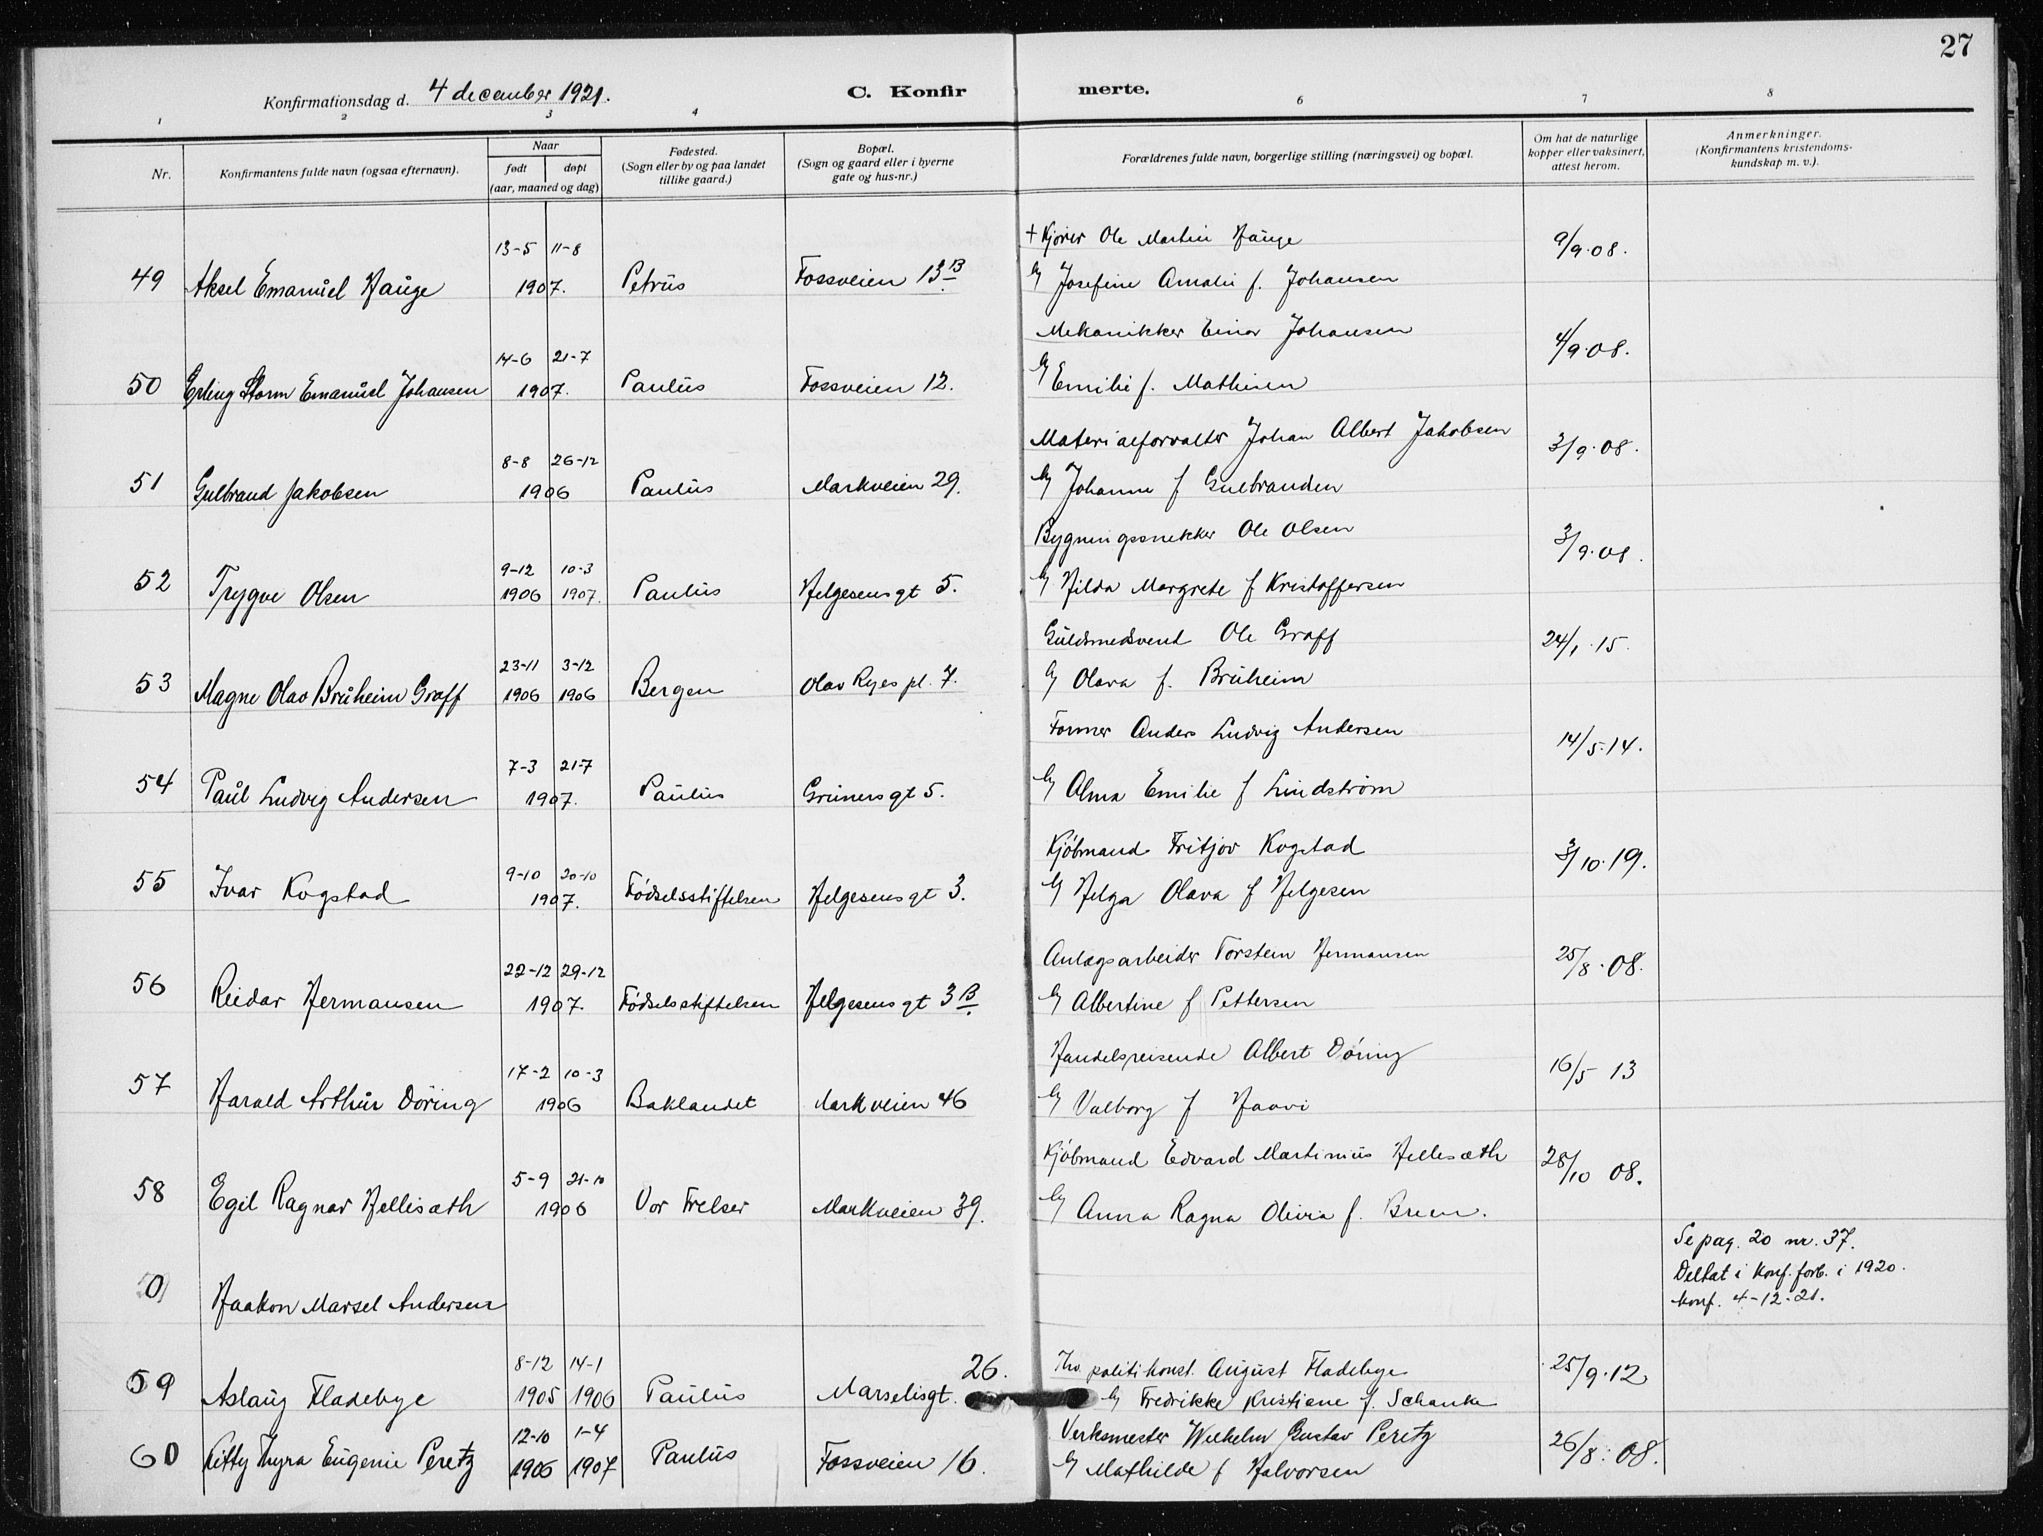 27
Konfirmationsdag d. 4 december 1921. C. Konfir merte.
1 2 3 4 6 7 8
Nr.
Konfirmantens fulde navn (ogsaa efternavn).
Naar
født døpt
(aar, maaned og dag)
Fødested.
(Sogn eller by og paa landet
tillike gaard.)
Bopæl.
(Sogn og gaard eller i byerne
gate og hus-nr.)
Forældrenes fulde navn, borgerlige stilling (næringsvei) og bopæl.
Om hat de naturlige
kopper eller vaksinert,
attest herom.
Anmerkninger.
(Konfirmantens kristendoms-
kundskap m. v.).
13-5 11-8 + Kjører Ole Martin Hauge 9/9.08.
49 Aksel Emanuel Hauge 1907. Petrus Fossveien 13B. Og Josefine Amalie f. Johansen
14-6 21-7 Mekanikker Einar Johansen 4/9.08.
50 Erling Storm Emanuel Johansen 1907. Paulus Fossveien 12. Og Emilie f. Mathisen
8-8 26-12 Materialforvalter Johan Albert Jakobsen 3/9.08.
51 Gulbrand Jakobsen 1906 Paulus Markveien 29. Og Johanne f Gulbrandsen
9-12 10-3 Bygningssnekker Ole Olsen 3/9.08.
52 Trygve Olsen 1906 1907. Paulus Helgesens gt 5. Og Hilda Margrete f Kristoffersen
23-11 3-12 Guldsmedsvend Ole Graff 24/1.15.
53 Magne Olav Bruheim Graff 1906 1906 Bergen Olav Ryes pl. 7. Og Olava f. Bruheim
7-3 21-7 Former Anders Ludvig Andersen 14/5.14.
54 Paul Ludvig Andersen 1907. Paulus Grüners gt 5. Og Alma Emilie f Lindstrøm
9-10 20-10 Kjøbmand Fritjov Kogstad 3/10.19.
55 Ivar Kogstad 1907. Fødselsstiftelsen Helgesens gt 3. Og Helga Olava f Helgesen
22-12 29-12 Anlægsarbeider Torstein Hermansen 25/8.08.
56 Reidar Hermansen 1907. Fødselsstiftelsen Helgesens gt 3B. Og Albertine f Pettersen
17-2 10-3 Handelsreisende Albert Döring 16/5 13
57 Harald Arthur Döring 1906 Baklandet Markveien 46 Og Valborg f Haavi
5-9 21-10 Kjøbmand Edvard Martinius Hellesæth 28/10 08.
58 Egil Ragnar Hellisæth 1906 Vor Frelser Markveien 39. Og Anna Ragna Olivia f. Bruun.
Se pag. 20 nr. 37.
Deltat i konf. forb. i 1920.
0 Haakon Marsel Andersen konf. 4-12-21.
8-12 14-1 26. Fhv. politikonst. August Fladebye 25/9.12
59 Aslaug Fladebye 1905 1906 Paulus Marselisgt. Og Fredrikke Kristiane f. Schanke
12-10 1-4 Verksmester Wilhelm Gustav Peretz 26/8.08.
60 Kitty Thyra Eugenie Peretz 1906 1907 Paulus Fossveien 16. Og Mathilde f Halvorsen